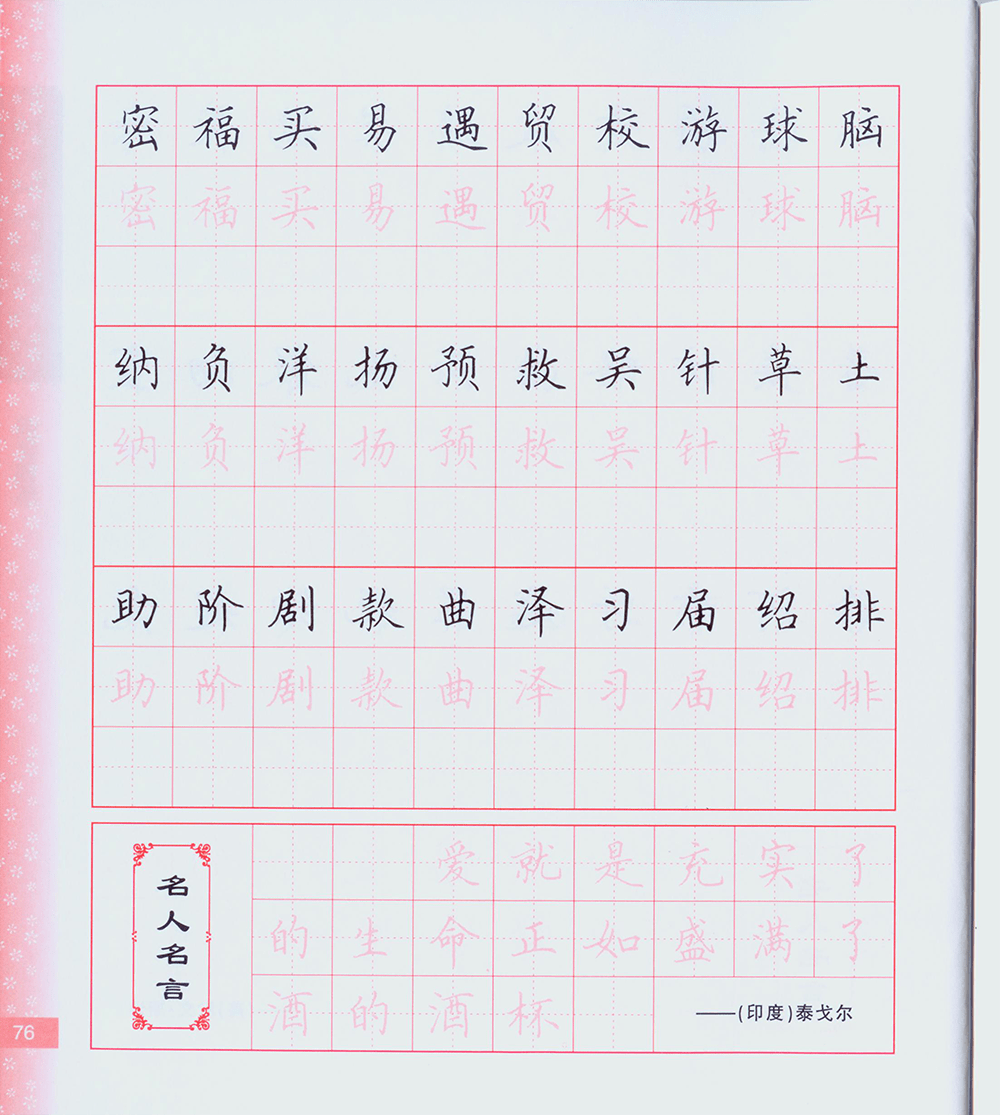 密福买易遇贸校游球脑
密福买易遇贸校游球脑
纳负洋扬预救吴针草土
纳负洋扬预救吴针草土
助阶剧款曲泽习届绍排
助阶剧款曲泽习届绍排
名人名言
爱就是充实了
的生命正如盛满了
酒的酒杯
——(印度)泰戈尔
76